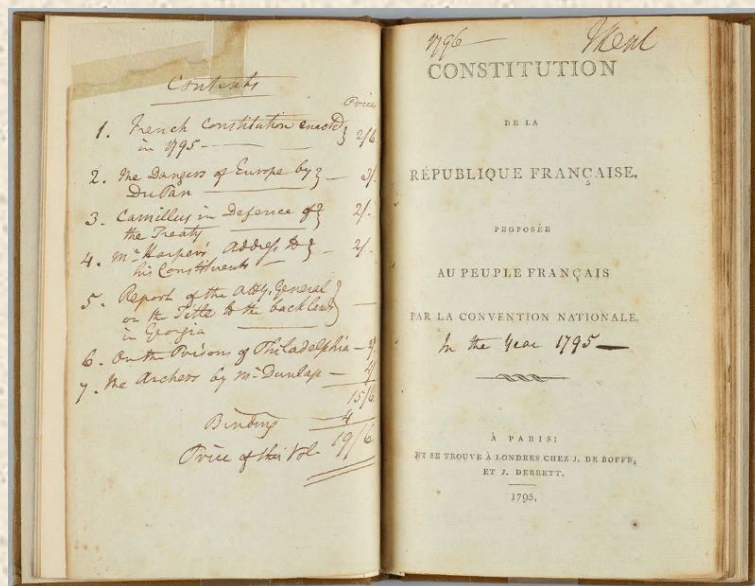 Contents
Price
1. French Constitution enacted
in 1795 } 2/6
2. The Dangers of Europe by
Du Pan } 3/.
3. Camillus in Defence of
the Treaty } 2/.
4. Mr Harper's Address to
his Constituents } 2/.
5. Report of the Atty. General
on the Title to the back lands
in Georgia }
6. On the Prisons of Philadelphia
7. The Archers by Mr Dunlap
15/6
Binding 4
Price of this Vol. 19/6
1796
CONSTITUTION
DE LA
RÉPUBLIQUE FRANÇAISE,
PROPOSÉE
AU PEUPLE FRANÇAIS
PAR LA CONVENTION NATIONALE.
In the Year 1795
À PARIS:
ET SE TROUVE À LONDRES CHEZ J. DE BOFFE,
ET J. DEBRETT.
1795.